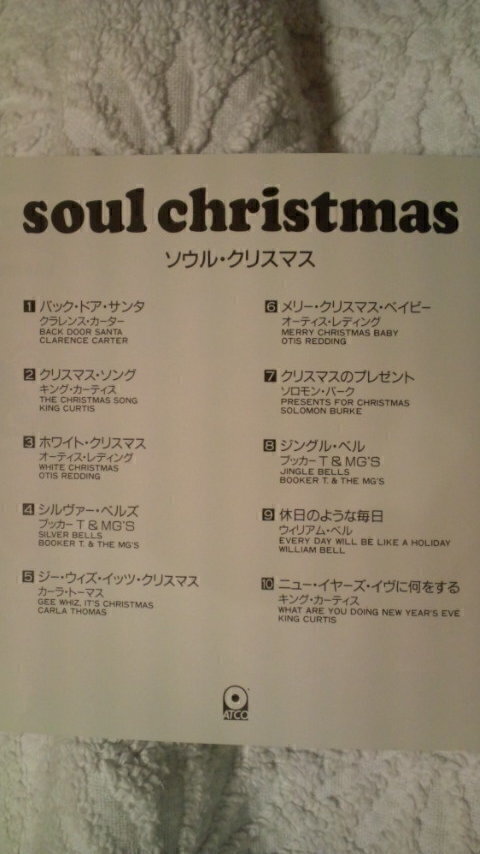 soul christmas
ソウル・クリスマス
1 バック・ドア・サンタ
クラレンス・カーター
BACK DOOR SANTA
CLARENCE CARTER
2 クリスマス・ソング
キング・カーティス
THE CHRISTMAS SONG
KING CURTIS
3 ホワイト・クリスマス
オーティス・レディング
WHITE CHRISTMAS
OTIS REDDING
4 シルヴァー・ベルズ
ブッカー T & MG'S
SILVER BELLS
BOOKER T. & THE MG'S
5 ジー・ウィズ・イッツ・クリスマス
カーラ・トーマス
GEE WHIZ, IT'S CHRISTMAS
CARLA THOMAS
6 メリー・クリスマス・ベイビー
オーティス・レディング
MERRY CHRISTMAS BABY
OTIS REDDING
7 クリスマスのプレゼント
ソロモン・バーク
PRESENTS FOR CHRISTMAS
SOLOMON BURKE
8 ジングル・ベル
ブッカー T & MG'S
JINGLE BELLS
BOOKER T. & THE MG'S
9 休日のような毎日
ウィリアム・ベル
EVERY DAY WILL BE LIKE A HOLIDAY
WILLIAM BELL
10 ニュー・イヤーズ・イヴに何をする
キング・カーティス
WHAT ARE YOU DOING NEW YEAR'S EVE
KING CURTIS
ATCO